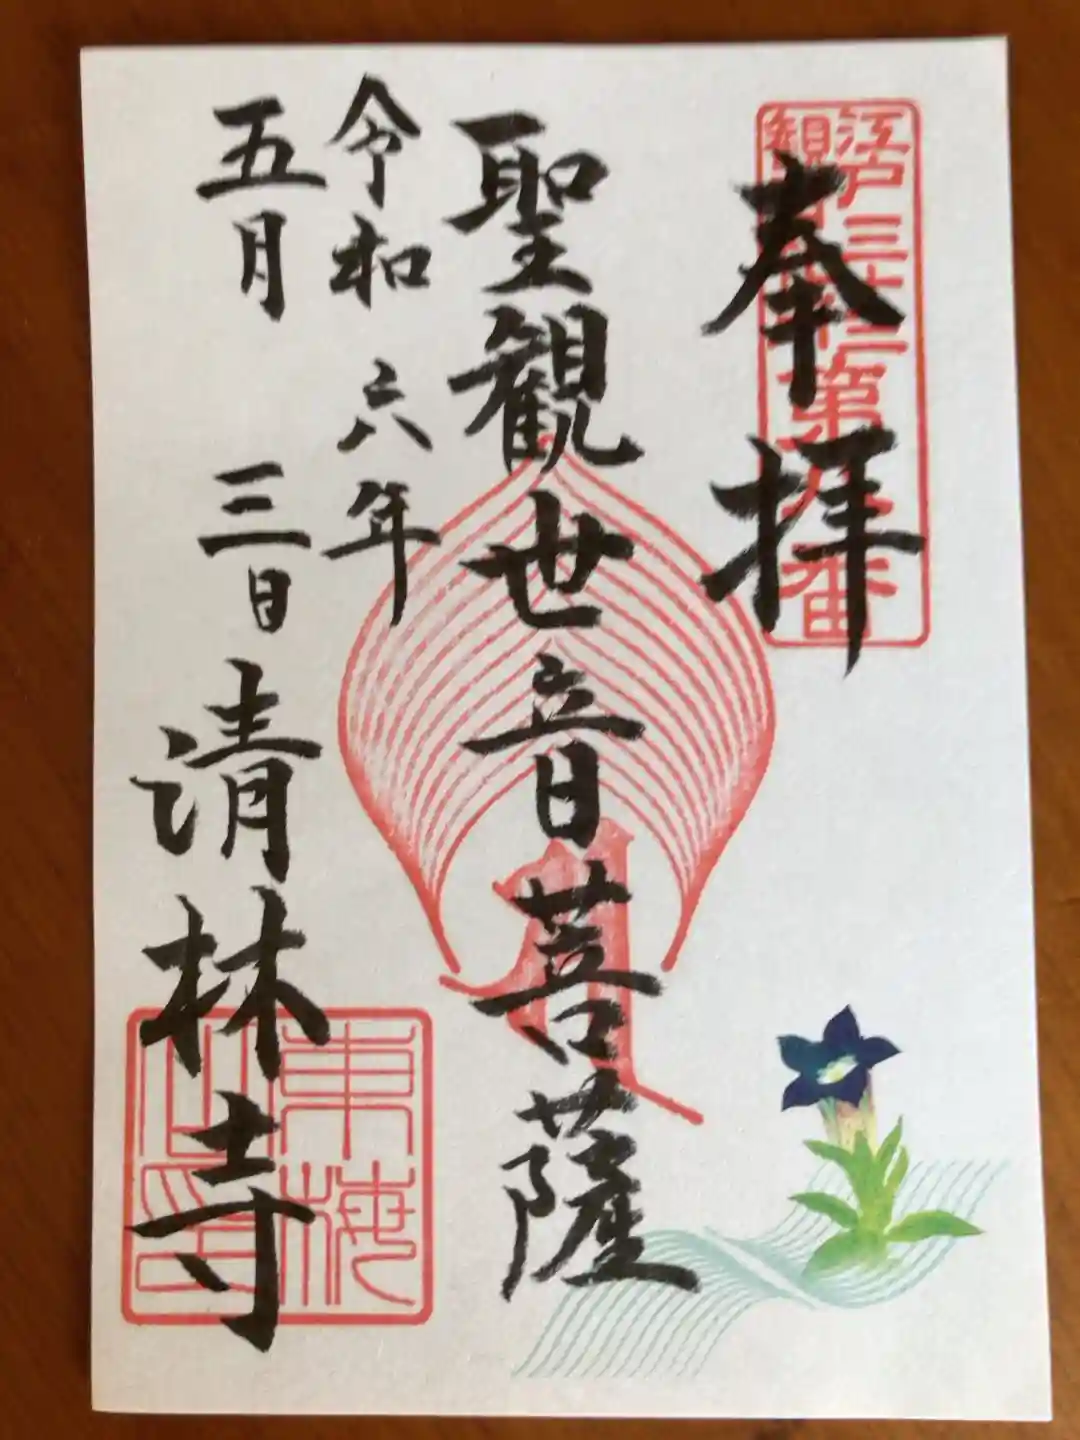 奉拝
江戸三十三
観音札所第八番
聖観世音菩薩
令和六年
五月三日
清林寺
東梅
山印